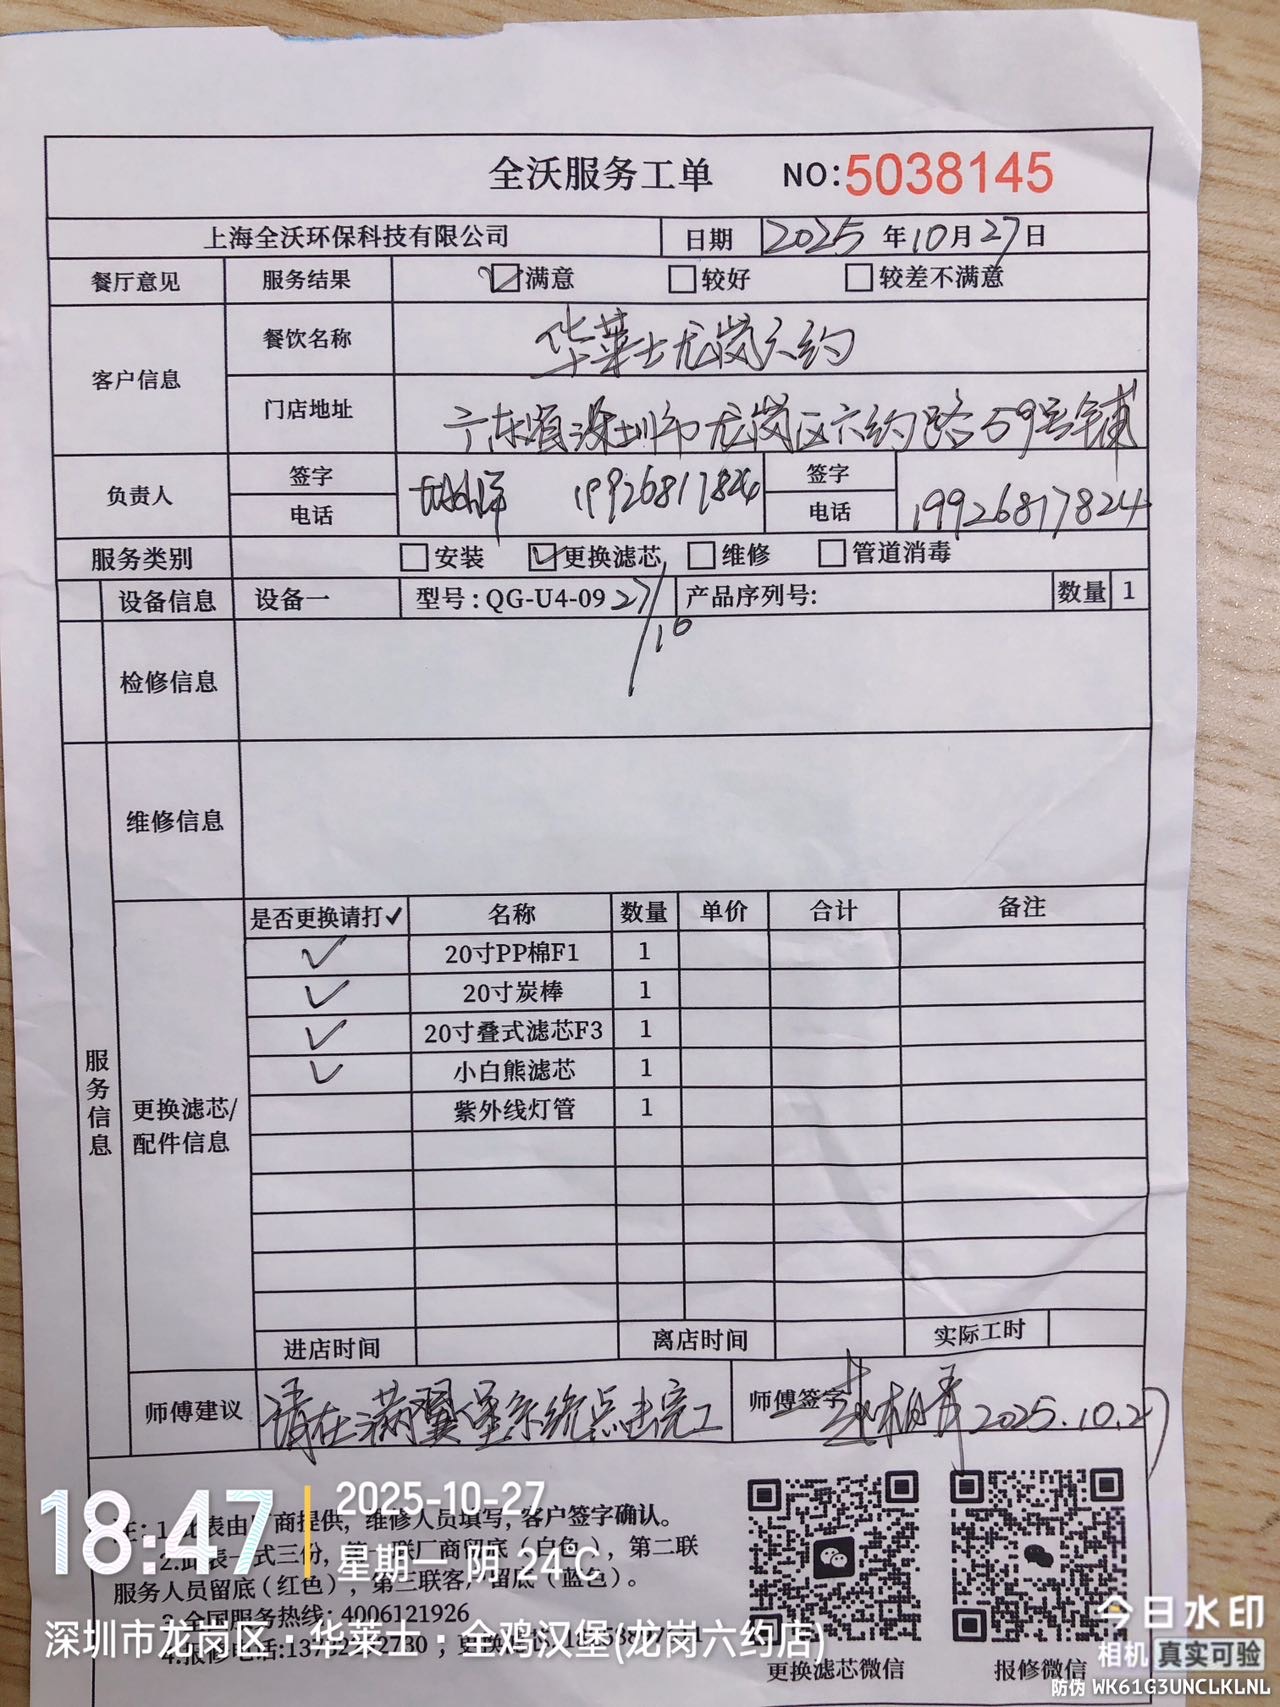 全沃服务工单 NO:5038145
上海全沃环保科技有限公司 日期 2025年10月27日
餐厅意见 服务结果 满意 较好 较差不满意
客户信息 餐饮名称 华莱士龙岗六约
门店地址 广东省深圳市龙岗区六约路59号铺
负责人 签字 19926817824 签字
电话 电话 19926817824
服务类别 安装 更换滤芯 维修 管道消毒
设备信息 设备一 型号:QG-U4-09 产品序列号: 数量 1
27/10
检修信息
维修信息
是否更换请打✓ 名称 数量 单价 合计 备注
✓ 20寸PP棉F1 1
✓ 20寸炭棒 1
✓ 20寸叠式滤芯F3 1
✓ 小白熊滤芯 1
紫外线灯管 1
服务信息
更换滤芯/
配件信息
进店时间 离店时间 实际工时
师傅建议 请在满翼堡系统点击完工 师傅签字 2025.10.27
注:1.此表由厂商提供,维修人员填写,客户签字确认。
2.此表一式三份,第一联厂商留底(白色),第二联
服务人员留底(红色),第三联客户留底(蓝色)。
3.全国服务热线:4006121926
4.报修电话:
更换滤芯微信 报修微信
18:47
2025-10-27
星期一 阴 24℃
深圳市龙岗区·华莱士·全鸡汉堡(龙岗六约店)
今日水印
相机 真实可验
防伪 WK61G3UNCLKLNL